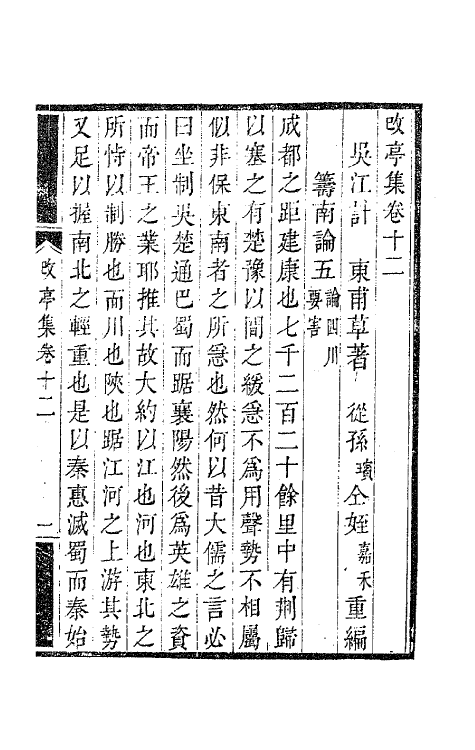 改亭集卷十二
吳江計　東甫草著　從孫璸仝姪嘉禾重編
籌南論五論四川要害
成都之距建康也七千二百二十餘里中有荆歸
以塞之有楚豫以間之緩急不為用聲勢不相屬
似非保東南者之所急也然何以昔大儒之言必
曰坐制吳楚通巴蜀而踞襄陽然後為英雄之資
而帝王之業耶推其故大約以江也河也東北之
所恃以制勝也而川也陝也踞江河之上游其勢
又足以握南北之輕重也是以秦惠滅蜀而秦始
改亭集卷十二　一